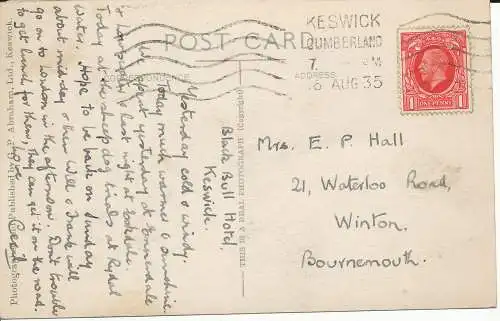 POST CARD
CORRESPONDENCE
ADDRESS
KESWICK
CUMBERLAND
7. M
6 AUG 35
POSTAGE
ONE PENNY
Black Bull Hotel,
Keswick.
Yesterday cold & windy.
Today much warmer & sunshine.
We spent yesterday at Ennerdale
& Loweswater & last night at Lodore.
Today at the sheep dog trials at Rydal
Water. Hope to be back on Sunday
about mid-day & then Will & Frank will
go on to London in the afternoon. Don't trouble
to get lunch for them, they can get it on the road.
Love Cecil
Mrs. E. P. Hall
21, Waterloo Road,
Winton.
Bournemouth.
THIS IS A REAL PHOTOGRAPH
Ltd., Keswick.